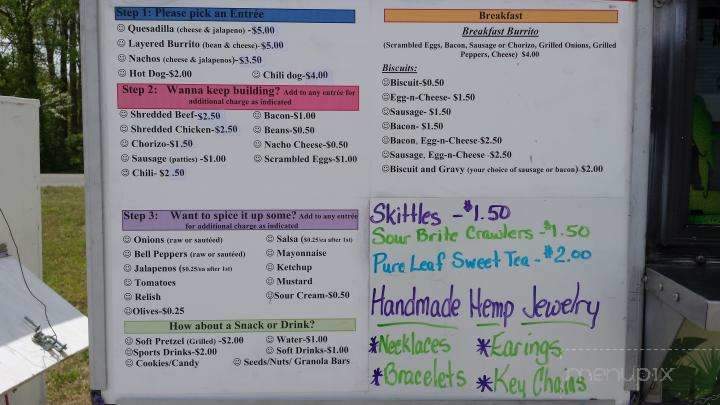 Step 1: Please pick an Entrée
☺ Quesadilla (cheese & jalapeno) -$5.00
☺ Layered Burrito (bean & cheese)-$5.00
☺ Nachos (cheese & jalapeños)-$3.50
☺ Hot Dog-$2.00 ☺ Chili dog-$4.00
Step 2: Wanna keep building? Add to any entrée for
additional charge as indicated
☺ Shredded Beef-$2.50 ☺ Bacon-$1.00
☺ Shredded Chicken-$2.50 ☺ Beans-$0.50
☺ Chorizo-$1.50 ☺ Nacho Cheese-$0.50
☺ Sausage (patties) -$1.00 ☺ Scrambled Eggs-$1.00
☺ Chili- $2.50
Step 3: Want to spice it up some? Add to any entrée
for additional charge as indicated
☺ Onions (raw or sautéed) ☺ Salsa ($0.25/ea after 1st)
☺ Bell Peppers (raw or sautéed) ☺ Mayonnaise
☺ Jalapenos ($0.25/ea after 1st) ☺ Ketchup
☺ Tomatoes ☺ Mustard
☺ Relish ☺Sour Cream-$0.50
☺Olives-$0.25
How about a Snack or Drink?
☺ Soft Pretzel (Grilled) -$2.00 ☺ Water-$1.00
☺Sports Drinks-$2.00 ☺ Soft Drinks-$1.00
☺ Cookies/Candy ☺ Seeds/Nuts/ Granola Bars
Breakfast
Breakfast Burrito
(Scrambled Eggs, Bacon, Sausage or Chorizo, Grilled Onions, Grilled
Peppers, Cheese) $4.00
Biscuits:
☺Biscuit-$0.50
☺Egg-n-Cheese- $1.50
☺Sausage- $1.50
☺Bacon- $1.50
☺Bacon, Egg-n-Cheese-$2.50
☺Sausage, Egg-n-Cheese -$2.50
☺Biscuit and Gravy (your choice of sausage or bacon)-$2.00
Skittles -$1.50
Sour Brite Crawlers -$1.50
Pure Leaf Sweet Tea - $2.00
Handmade Hemp Jewelry
*Necklaces *Earings
*Bracelets *Key Chains
menupix